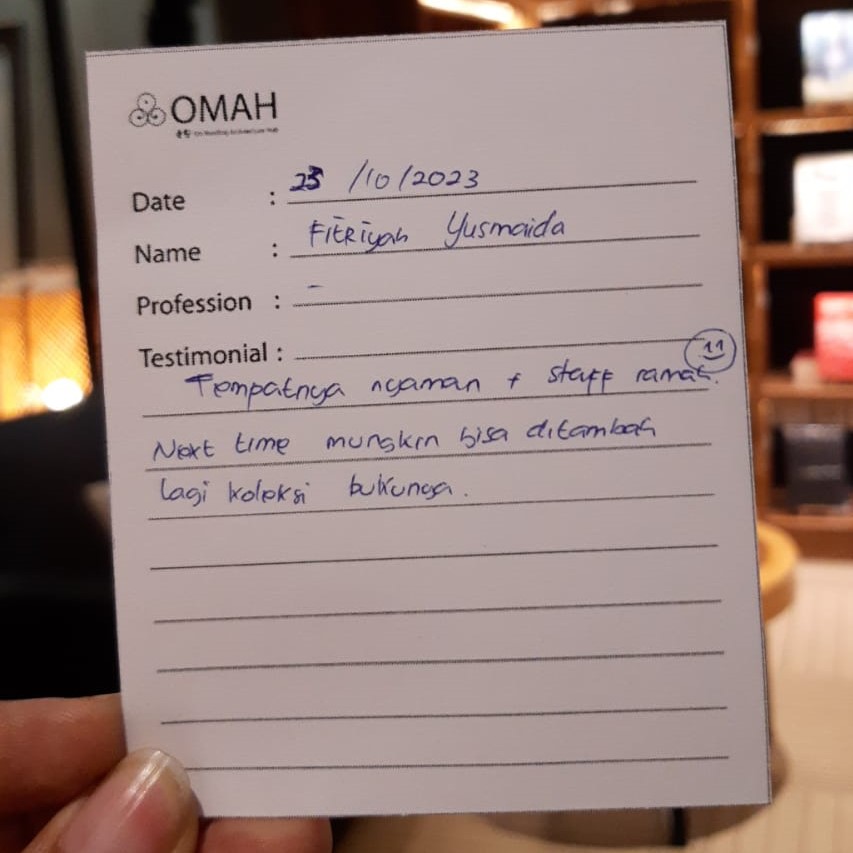 OMAH
Date : 23 /10/2023
Name : Fitriyah Yusmaida
Profession : -
Testimonial :
Tempatnya nyaman + staff ramah.
Next time mungkin bisa ditambah
lagi koleksi bukunya.